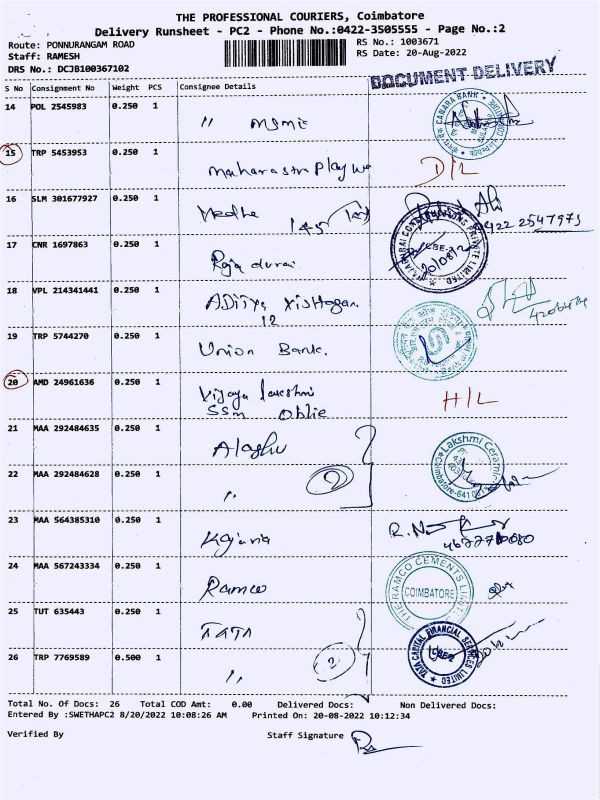 THE PROFESSIONAL COURIERS, Coimbatore
Delivery Runsheet - PC2 - Phone No.:0422-3505555 - Page No.:2
Route: PONNURANGAM ROAD
RS No.: 1003671
Staff: RAMESH
RS Date: 20-Aug-2022
DRS No.: DCJB100367102
DOCUMENT DELIVERY
S No Consignment No Weight PCS Consignee Details
14 POL 2545983 0.250 1 " MSME
CANARA BANK
15 TRP 5453953 0.250 1 maharastra D/L
16 SLM 301677927 0.250 1 Medha
0422 2547973
17 CNR 1697863 0.250 1 Raja durai
PRIVATE LIMITED
CBE-2
20/08/22
18 VPL 214341441 0.250 1 Aditya
12
19 TRP 5744270 0.250 1 Union Bank.
20 AMD 24961636 0.250 1 Vijaya lakshmi H/L
SSM
21 MAA 292484635 0.250 1
Lakshmi Ceramic
22 MAA 292484628 0.250 1 " 2
23 MAA 564385310 0.250 1 Kajaria
24 MAA 567243334 0.250 1 Ramco
THE RAMCO CEMENTS LIMITED
COIMBATORE
25 TUT 635443 0.250 1 TATA
TATA CAPITAL FINANCIAL SERVICES LIMITED
26 TRP 7769589 0.500 1 " 2
Total No. Of Docs: 26 Total COD Amt: 0.00 Delivered Docs: Non Delivered Docs:
Entered By :SWETHAPC2 8/20/2022 10:08:26 AM Printed On: 20-08-2022 10:12:34
Verified By Staff Signature